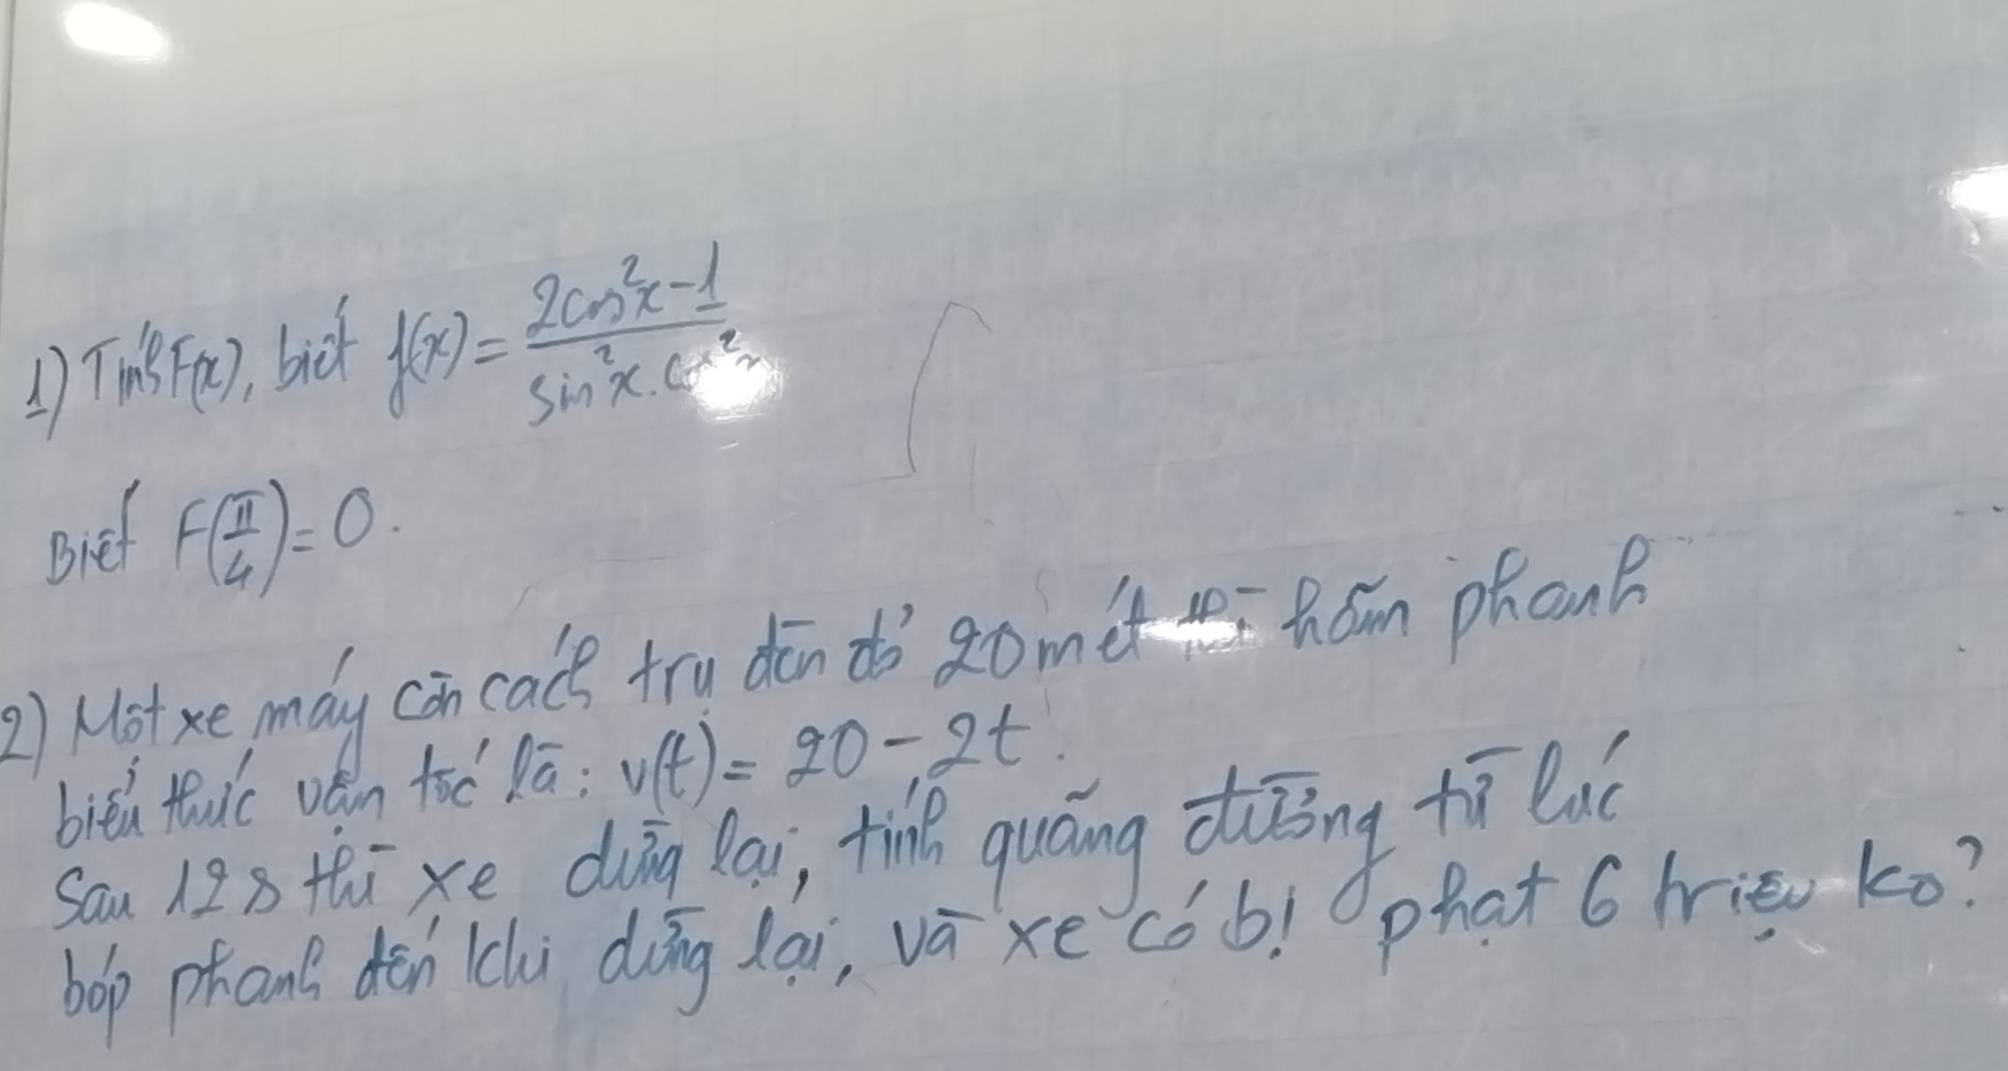 1) Tính F(x), biết f(x) = \frac{2cos²x - 1}{sin²x.cos²x}
Biết F(\frac{π}{4}) = 0.
2) Một xe máy còn cách trụ đèn đỏ 20 mét thì hãm phanh
biểu thức vận tốc là: v(t) = 20 - 2t.
Sau 12s thì xe dừng lại, tính quãng đường từ lúc
bóp phanh đến khi dừng lại, và xe có bị phạt 6 triệu ko?